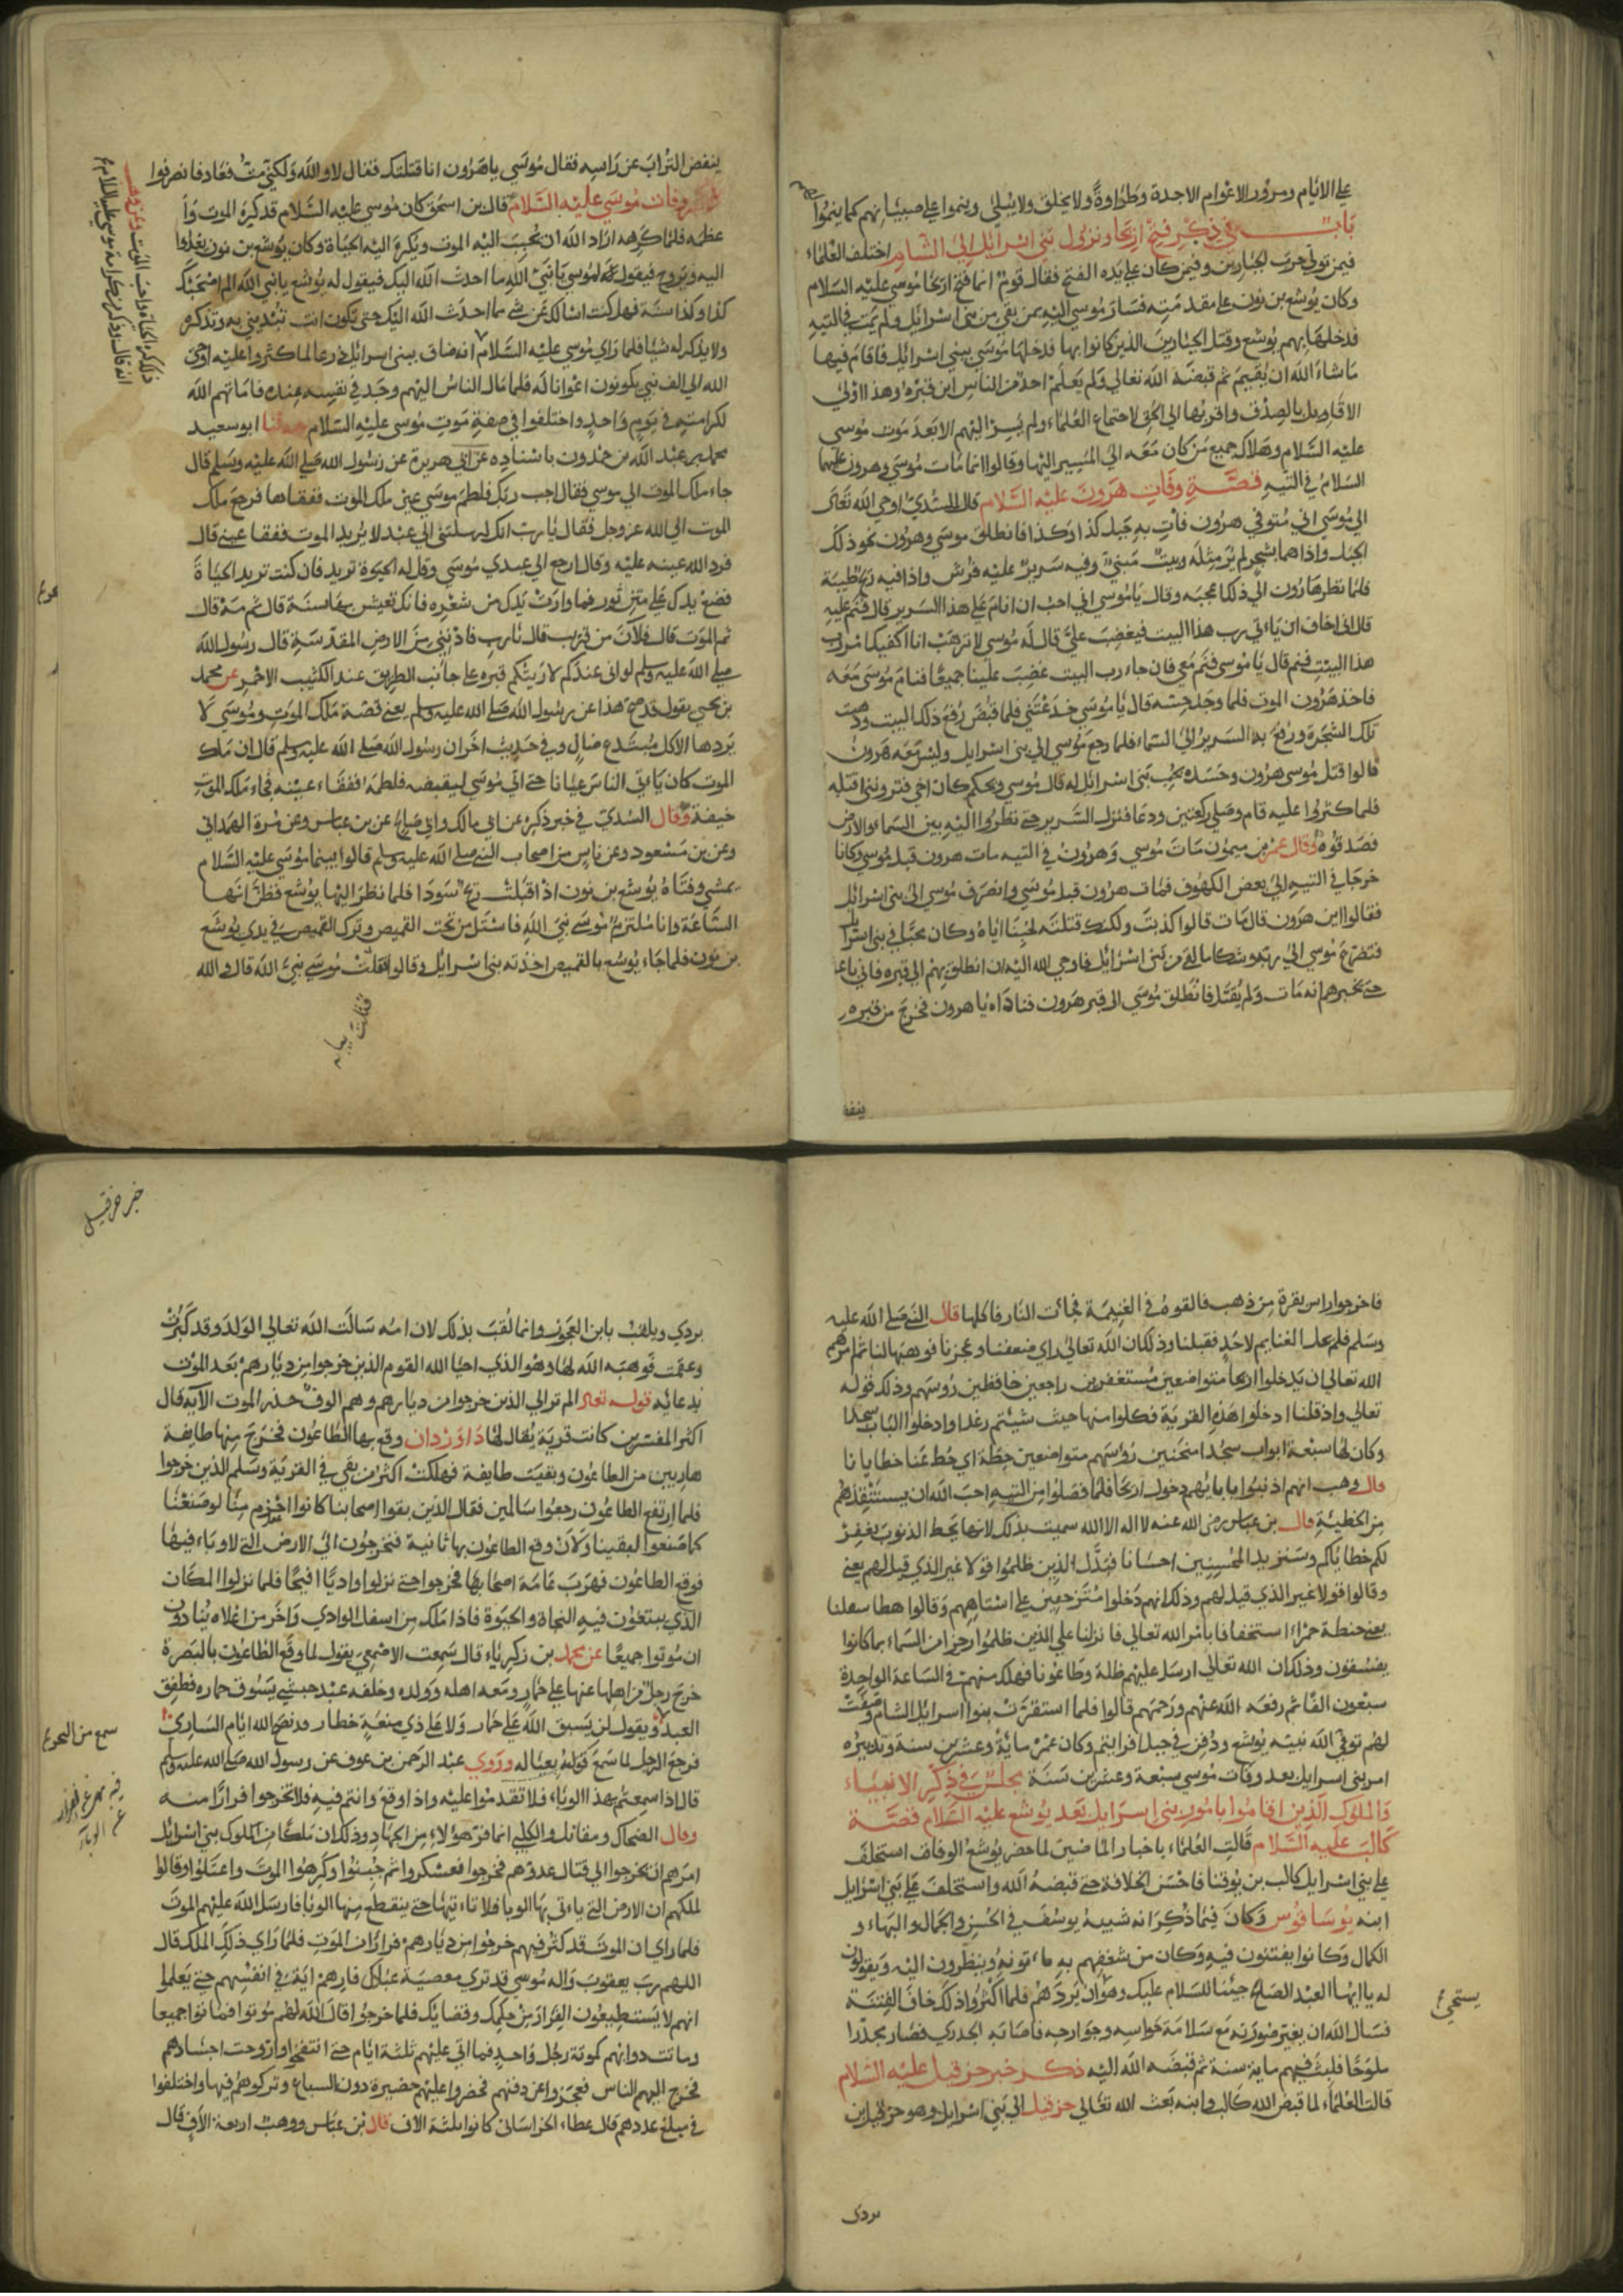 علي الايام ومرور الاعوام الاجدة وطراوة ولا يخلق ولا يبلي وينموا علي صبيانهم كما ينموا
باب في ذكر فتح اريحا ونزول بني اسرائيل الي الشام اختلف العلماء
فيمن تولي حرب الجبارين وفيمن كان علي يده الفتح فقال قوم انما فتح اريحا موسي عليه السلام
وكان يوشع بن نون علي مقدمته فسار موسي اليهم بمن بقي من بني اسرائيل ولم يمت في التيه
فدخلها بهم يوشع وقتل الجبارين الذين كانوا بها فدخلها موسي ببني اسرائيل فاقام فيها
ماشاء الله ان يقيم ثم قبضه الله تعالي ولم يعلم احد من الناس اين قبره وهذا اولي
الاقاويل بالصدق واقربها الي الحق لاجتماع العلماء ولم يسر اليهم الا بعد موت موسي
عليه السلام وهلاك جميع من كان معه الي المسير اليها وقالوا انما مات موسي وهرون عليهما
السلام في التيه قصة وفات هرون عليه السلام قال السدي اوحي الله تعالي
الي موسي اني متوفي هرون فأت به جبل كذا وكذا فانطلق موسي وهرون نحو ذلك
الجبل واذا هما بشجر لم ير مثله وبيت مبني وفيه سرير عليه فرش واذا فيه ريح طيبة
فلما نظر هارون الي ذلك اعجبه وقال ياموسي اني احب ان انام علي هذا السرير قال فنم عليه
قال اني اخاف ان يأتي رب هذا البيت فيغضب علي قال له موسي لا ترهب انا اكفيك رب
هذا البيت فنم قال يا موسي فنم معي فان جاء رب البيت غضب علينا جميعا فنام موسي معه
فاخذ هرون الموت فلما وجد حسه قال يا موسي خدعتني فلما قبض رفع ذلك البيت وذهبت
تلك الشجرة ورفع به السرير الي السماء فلما رجع موسي الي بني اسرايل وليس معه هرون
قالوا قتل موسي هرون وحسده لحب بني اسرائيل له قال موسي ويحكم كان اخي فترونني اقتله
فلما كثروا عليه قام وصلي ركعتين ودعا فنزل السرير حتي نظروا اليه بين السماء والارض
فصدقوه وقال عمرو بن ميمون مات موسي وهرون في التيه مات هرون قبل موسي وكانا
خرجا في التيه الي بعض الكهوف فمات هرون قبل موسي وانصرف موسي الي بني اسرائيل
فقالوا اين هرون قال مات قالوا كذبت ولكنك قتلته لحبنا اياه وكان محبا في بني اسرايل
فتضرع موسي الي ربه وشكا ما لقي من بني اسرائيل فاوحي الله اليه ان انطلق بهم الي قبره فاني باعثه
حتي يخبرهم انه مات ولم يقتل فانطلق موسي الي قبر هرون فناداه يا هرون فخرج من قبره
ينفض
ينفض التراب عن راسه فقال موسي ياهرون انا قتلتك فقال لا والله ولكني مت فعاد فانصرفوا
وفات موسي عليه السلام قال بن اسحق كان موسي عليه السلام قد كره الموت و
عظمه فلما كرهه اراد الله ان يحبب اليه الموت ويكره اليه الحياة وكان يوشع بن نون يغدوا
اليه ويروح فيقول له موسي يا نبي الله ما احدث الله اليك فيقول له يوشع يانبي الله الم اصحبك
كذا وكذا سنة فهل كنت اسالك عن شي مما احدث الله اليك حتي تكون انت تبديني به وتذكره
ولا يذكر له شيا فلما راي موسي عليه السلام
الله الي الف نبي يكونون اعوانا له فلما مال الناس اليهم وجد في نفسه فاماتهم الله
لكرامته في يوم واحد واختلفوا في صفة موت موسي عليه السلام حدثنا ابو سعيد
محمد بن عبد الله بن حمدون باسناده عن ابي هريرة عن رسول الله صلي الله عليه وسلم قال
جاء ملك الموت الي موسي فقال اجب ربك فلطم موسي عين ملك الموت ففقاها فرجع ملك
الموت الي الله عز وجل فقال يا رب انك ارسلتني الي عبد لا يريد الموت ففقا عيني قال
فرد الله عينه عليه وقال ارجع الي عبدي موسي وقل له الحيوة تريد فان كنت تريد الحياة
فضع يدك علي متن ثور فما وارت يدك من شعره فانك تعيش بها سنة قال ثم مه قال
ثم الموت قال فالآن من قريب قال يا رب فادنني من الارض المقدسة قال رسول الله
صلي الله عليه وسلم لو اني عندكم لاريتكم قبره علي جانب الطريق عند الكثيب الاحمر عن محمد
بن يحيي يقول قد صح هذا عن رسول الله صلي الله عليه وسلم يعني قصة ملك الموت وموسي لا
يردها الا كل مبتدع ضال وفي حديث اخر ان رسول الله صلي الله عليه وسلم قال ان ملك
الموت كان ياتي الناس عيانا حتي اتي موسي ليقبضه فلطمه ففقاء عينه فجاء ملك الموت
خيفة وقال السدي في خبر ذكره عن ابي مالك وابي صالح عن بن عباس وعن مرة الهمداني
وعن بن مسعود وعن ناس من اصحاب النبي صلي الله عليه وسلم قالوا بينما موسي عليه السلام
يمشي وفتاه يوشع بن نون اذ اقبلت ريح سودا فلما نظر اليها يوشع فظن انها
الساعة وانا ملتزم موسي نبي الله فاستل من تحت القميص وترك القميص في يدي يوشع
بن نون فلما جاء يوشع بالقميص اخذته بني اسرائيل وقالوا قتلت موسي نبي الله قال والله
فاخرجوا راس بقرة من ذهب فالقوه في الغنيمة فجائت النار فاكلها قال النبي صلي الله عليه
وسلم فلم تحل الغنايم لاحد قبلنا وذلك ان الله تعالي راي ضعفنا وعجزنا فوهبها لنا ثم امرهم
الله تعالي ان يدخلوا اريحا متواضعين مستغفرين راجعين خافظين روسهم وذلك قوله
تعالي واذ قلنا ادخلوا هذه القرية فكلوا منها حيث شيئتم رغدا وادخلوا الباب سجدا
وكان لها سبعة ابواب سجدا منحنين روسهم متواضعين حطة اي حط عنا خطايانا
قال وهب انهم اذنبوا بابايهم دخول اريحا فلما فصلوا من التيه احب الله ان يستنقذهم
من الخطيئة قال بن عباس رضي الله عنه لا اله الا الله سميت بذلك لانها تحط الذنوب يغفر
لكم خطاياكم وسنزيد المحسنين احسانا فبدل الذين ظلموا قولا غير الذي قيل لهم يعني
وقالوا قولا غير الذي قيل لهم وذلك انهم دخلوا متزحفين علي استاههم وقالوا هطا سمقانا
يعني حنطة حمراء استخفافا بامر الله تعالي فانزلنا علي الذين ظلموا رجزا من السماء بما كانوا
يفسقون وذلك ان الله تعالي ارسل عليهم ظلة وطاعونا فهلك منهم في الساعة الواحدة
سبعون الفا ثم رفعه الله عنهم ورحمهم قالوا فلما استقرت بنوا اسرائيل الشام وصفت
لهم توفي الله نبيه يوشع ودفن في جبل افرايتم وكان عمره ماية وعشرين سنة وتدبيره
امر بني اسرايل بعد وفات موسي سبعة وعشرين سنة مجلس في ذكر الانبياء
والملوك الذين اقاموا بامور بني اسرايل بعد يوشع عليه السلام قصة
كالب عليه السلام قالت العلماء باخبار الماضين لما حضر يوشع الوفاة استخلف
علي بني اسرايل كالب بن يوقنا فاحسن الخلافة حتي قبضه الله واستخلف علي بني اسرايل
ابنه يوسافوس وكان فيما ذكر انه شبيه يوسف في الحسن والجمال والبهاء و
الكمال وكانوا يفتنون فيه وكان من شغفهم به ماءتونه وينظرون اليه ويقولون
له يا ايها العبد الصالح جئنا للسلام عليك وهو ان يردهم فلما اكثروا ذلك خاف الفتنة
فسال الله ان يغير صورته مع سلامة حواسه وجوارحه فاصابه الجدري فصار مجدرا
ملوحا فلبث فيهم ماية سنة ثم قبضه الله اليه ذكر خبر حزقيل عليه السلام
قالت العلماء لما قبض الله كالب وابنه بعث الله تعالي حزقيل الي بني اسرايل وهو حزقيل بن
يستحيي
بردي
خبر حزقيل
بردي ويلقب بابن العجوز وانما لقب بذلك لان امه سالت الله تعالي الولد وقد كبرت
وعقمت فوهبه الله لها وهو الذي احيا الله القوم الذين خرجوا من ديارهم بعد الموت
بدعائه قوله تعالي الم تر الي الذين خرجوا من ديارهم وهم الوف حذر الموت الآية قال
اكثر المفسرين كانت قرية يقال لها داوردان وقع بها الطاعون فخرج منها طايفة
هاربين من الطاعون وبقيت طايفة فهلكت اكثر من بقي في القرية وسلم الذين خرجوا
فلما ارتفع الطاعون رجعوا سالمين فقال الذين بقوا اصحابنا كانوا احزم منا لو صنعنا
كما صنعوا لبقينا ولان وقع الطاعون بها ثانية فنخرجون الي الارض التي لا وباء فيها
فوقع الطاعون فهرب عامة اصحابها فخرجوا حتي نزلوا واديا افيحا فلما نزلوا المكان
الذي يبتغون فيه النجاة والحيوة فاذا ملك من اسفل الوادي واخر من اعلاه يناد
ان موتوا جميعا عن محمد بن زكرياء قال سمعت الاصمعي يقول لما وقع الطاعون بالبصرة
خرج رجل من اهلها عنها علي حمار ومعه اهله وولده وخلفه عبد حبشي يسوق حماره فطفق
العبد ويقول لن يسبق الله علي حمار ولا علي ذي منعة خطار قد نصح الله ايام الساري
فرجع الرجل لما سمع قوله بعياله وروي عبد الرحمن بن عوف عن رسول الله صلي الله عليه وسلم
قال اذا سمعتم بهذا الوباء فلا تقدموا عليه واذا وقع وانتم فيه فلا تخرجوا فرارا منه
وقال الضحاك ومقاتل والكلبي انما فر هؤلاء من الجهاد وذلك ان ملكا من الملوك بني اسرائيل
امرهم ان يخرجوا الي قتال عدوهم فخرجوا فعسكروا ثم جبنوا وكرهوا الموت واعتلوا وقالوا
لملكهم ان الارض التي ياءتي بها الوبا فلا تاءتيها حتي ينقطع منها الوبا فارسل الله عليهم الموت
فلما راي ان الموت قد كثر فيهم خرجوا من ديارهم فرارا من الموت فلما راي ذلك الملك قال
اللهم رب يعقوب واله موسي قد تري معصية عبادك فارهم اية في انفسهم حتي يعلموا
انهم لا يستطيعون الفرار من حكمك وقضايك فلما خرجوا قال الله لهم موتوا فماتوا جميعا
وماتت دوابهم كموتة رجل واحد فما اتي عليهم ثلثة ايام حتي انتفخوا واروحت اجسادهم
فخرج اليهم الناس فعجزوا عن دفنهم فحضروا عليهم حضيرة دون السباع وتركوهم فيها واختلفوا
في مبلغ عددهم قال عطاء الخراساني كانوا ثلثة الاف قال بن عباس ووهب اربعة الاف قال